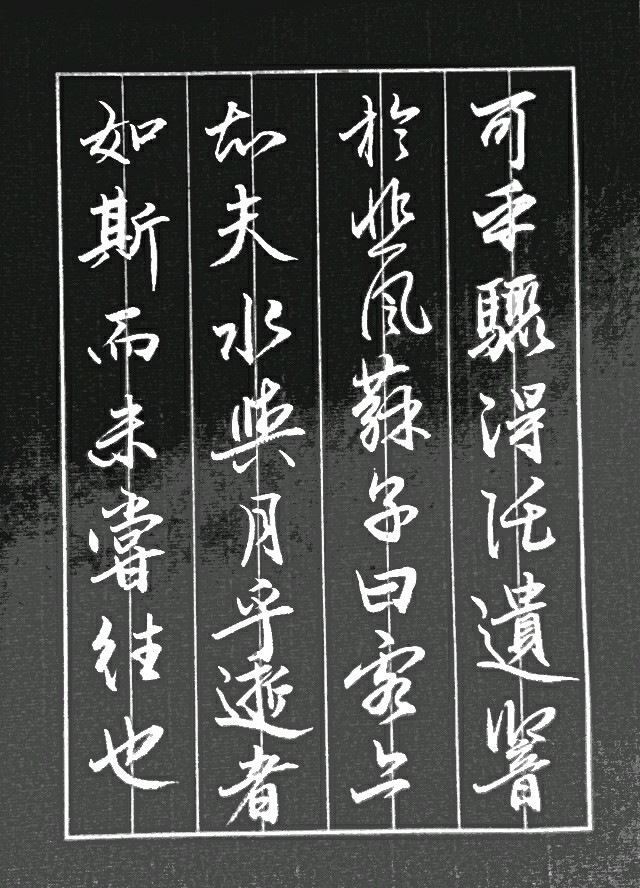 可乎驟得託遺響
於悲風蘇子曰客亦
知夫水與月乎逝者
如斯而未嘗往也